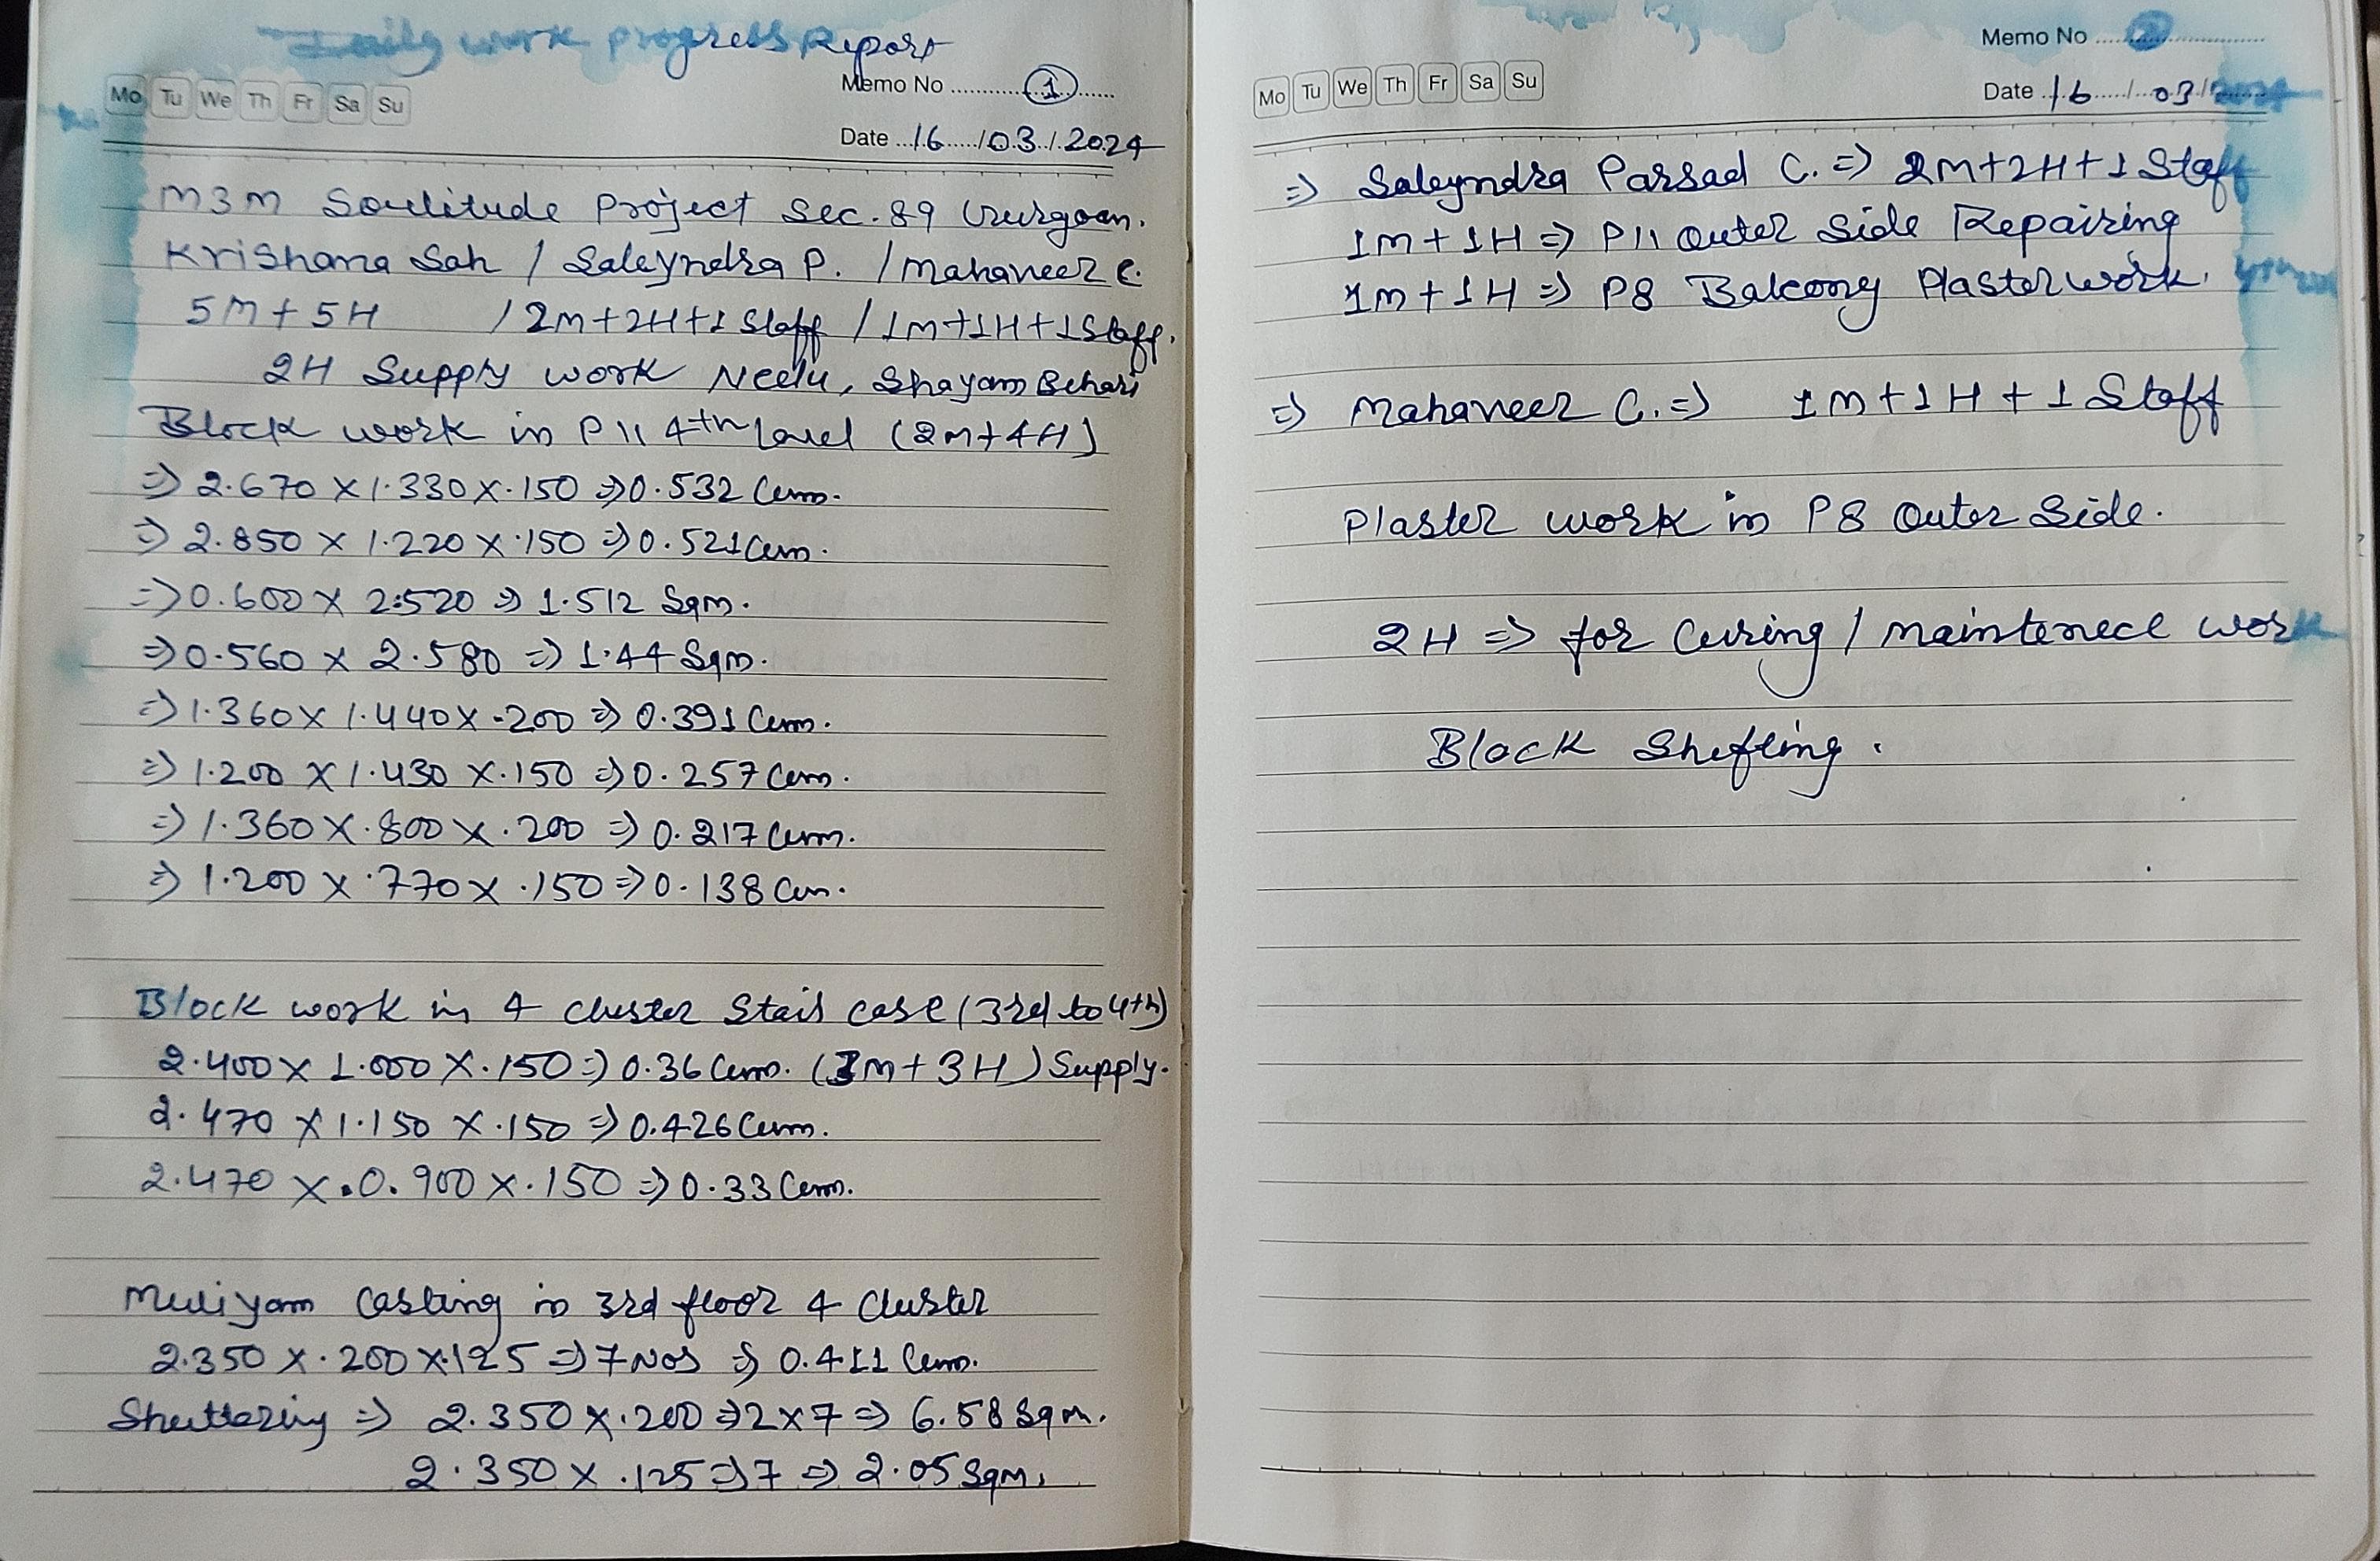 Daily work progress Report
Mo Tu We Th Fr Sa Su
Memo No 1
Date 16/03/2024
M3M Soulitude Project Sec. 89 Gurgoan.
Krishana Sah / Saleyndra P. / Mahaveer C.
5M+5H / 2M+2H+1 Staff / 1M+1H+1 Staff.
2H Supply work Neelu, Shayam Behari
Block work in P11 4th Level (2M+4H)
⇒ 2.670 X 1.330 X .150 ⇒ 0.532 Cum.
⇒ 2.850 X 1.220 X .150 ⇒ 0.521 Cum.
⇒ 0.600 X 2.520 ⇒ 1.512 Sqm.
⇒ 0.560 X 2.580 ⇒ 1.44 Sqm.
⇒ 1.360 X 1.440 X .200 ⇒ 0.391 Cum.
⇒ 1.200 X 1.430 X .150 ⇒ 0.257 Cum.
⇒ 1.360 X .800 X .200 ⇒ 0.217 Cum.
⇒ 1.200 X .770 X .150 ⇒ 0.138 Cum.
Block work in 4 cluster Stair case (3rd to 4th)
2.400 X 1.000 X .150 ⇒ 0.36 Cum. (3M+3H) Supply.
2.470 X 1.150 X .150 ⇒ 0.426 Cum.
2.470 X 0.900 X .150 ⇒ 0.33 Cum.
Muliyam Casting in 3rd floor 4 Cluster
2.350 X .200 X .125 ⇒ 7 Nos ⇒ 0.411 Cum.
Shuttering ⇒ 2.350 X .200 ⇒ 2 X 7 ⇒ 6.58 Sqm.
2.350 X .125 ⇒ 7 ⇒ 2.05 Sqm.
Memo No 2
Mo Tu We Th Fr Sa Su
Date 16/03/2024
⇒ Saleyndra Parsad C. ⇒ 2M+2H+1 Staff
1M+1H ⇒ P11 Outer Side Repairing
1M+1H ⇒ P8 Balcony Plaster work.
⇒ Mahaveer C. ⇒ 1M+1H+1 Staff
Plaster work in P8 Outer Side.
2H ⇒ for Curing / maintenece work
Block Shefting.